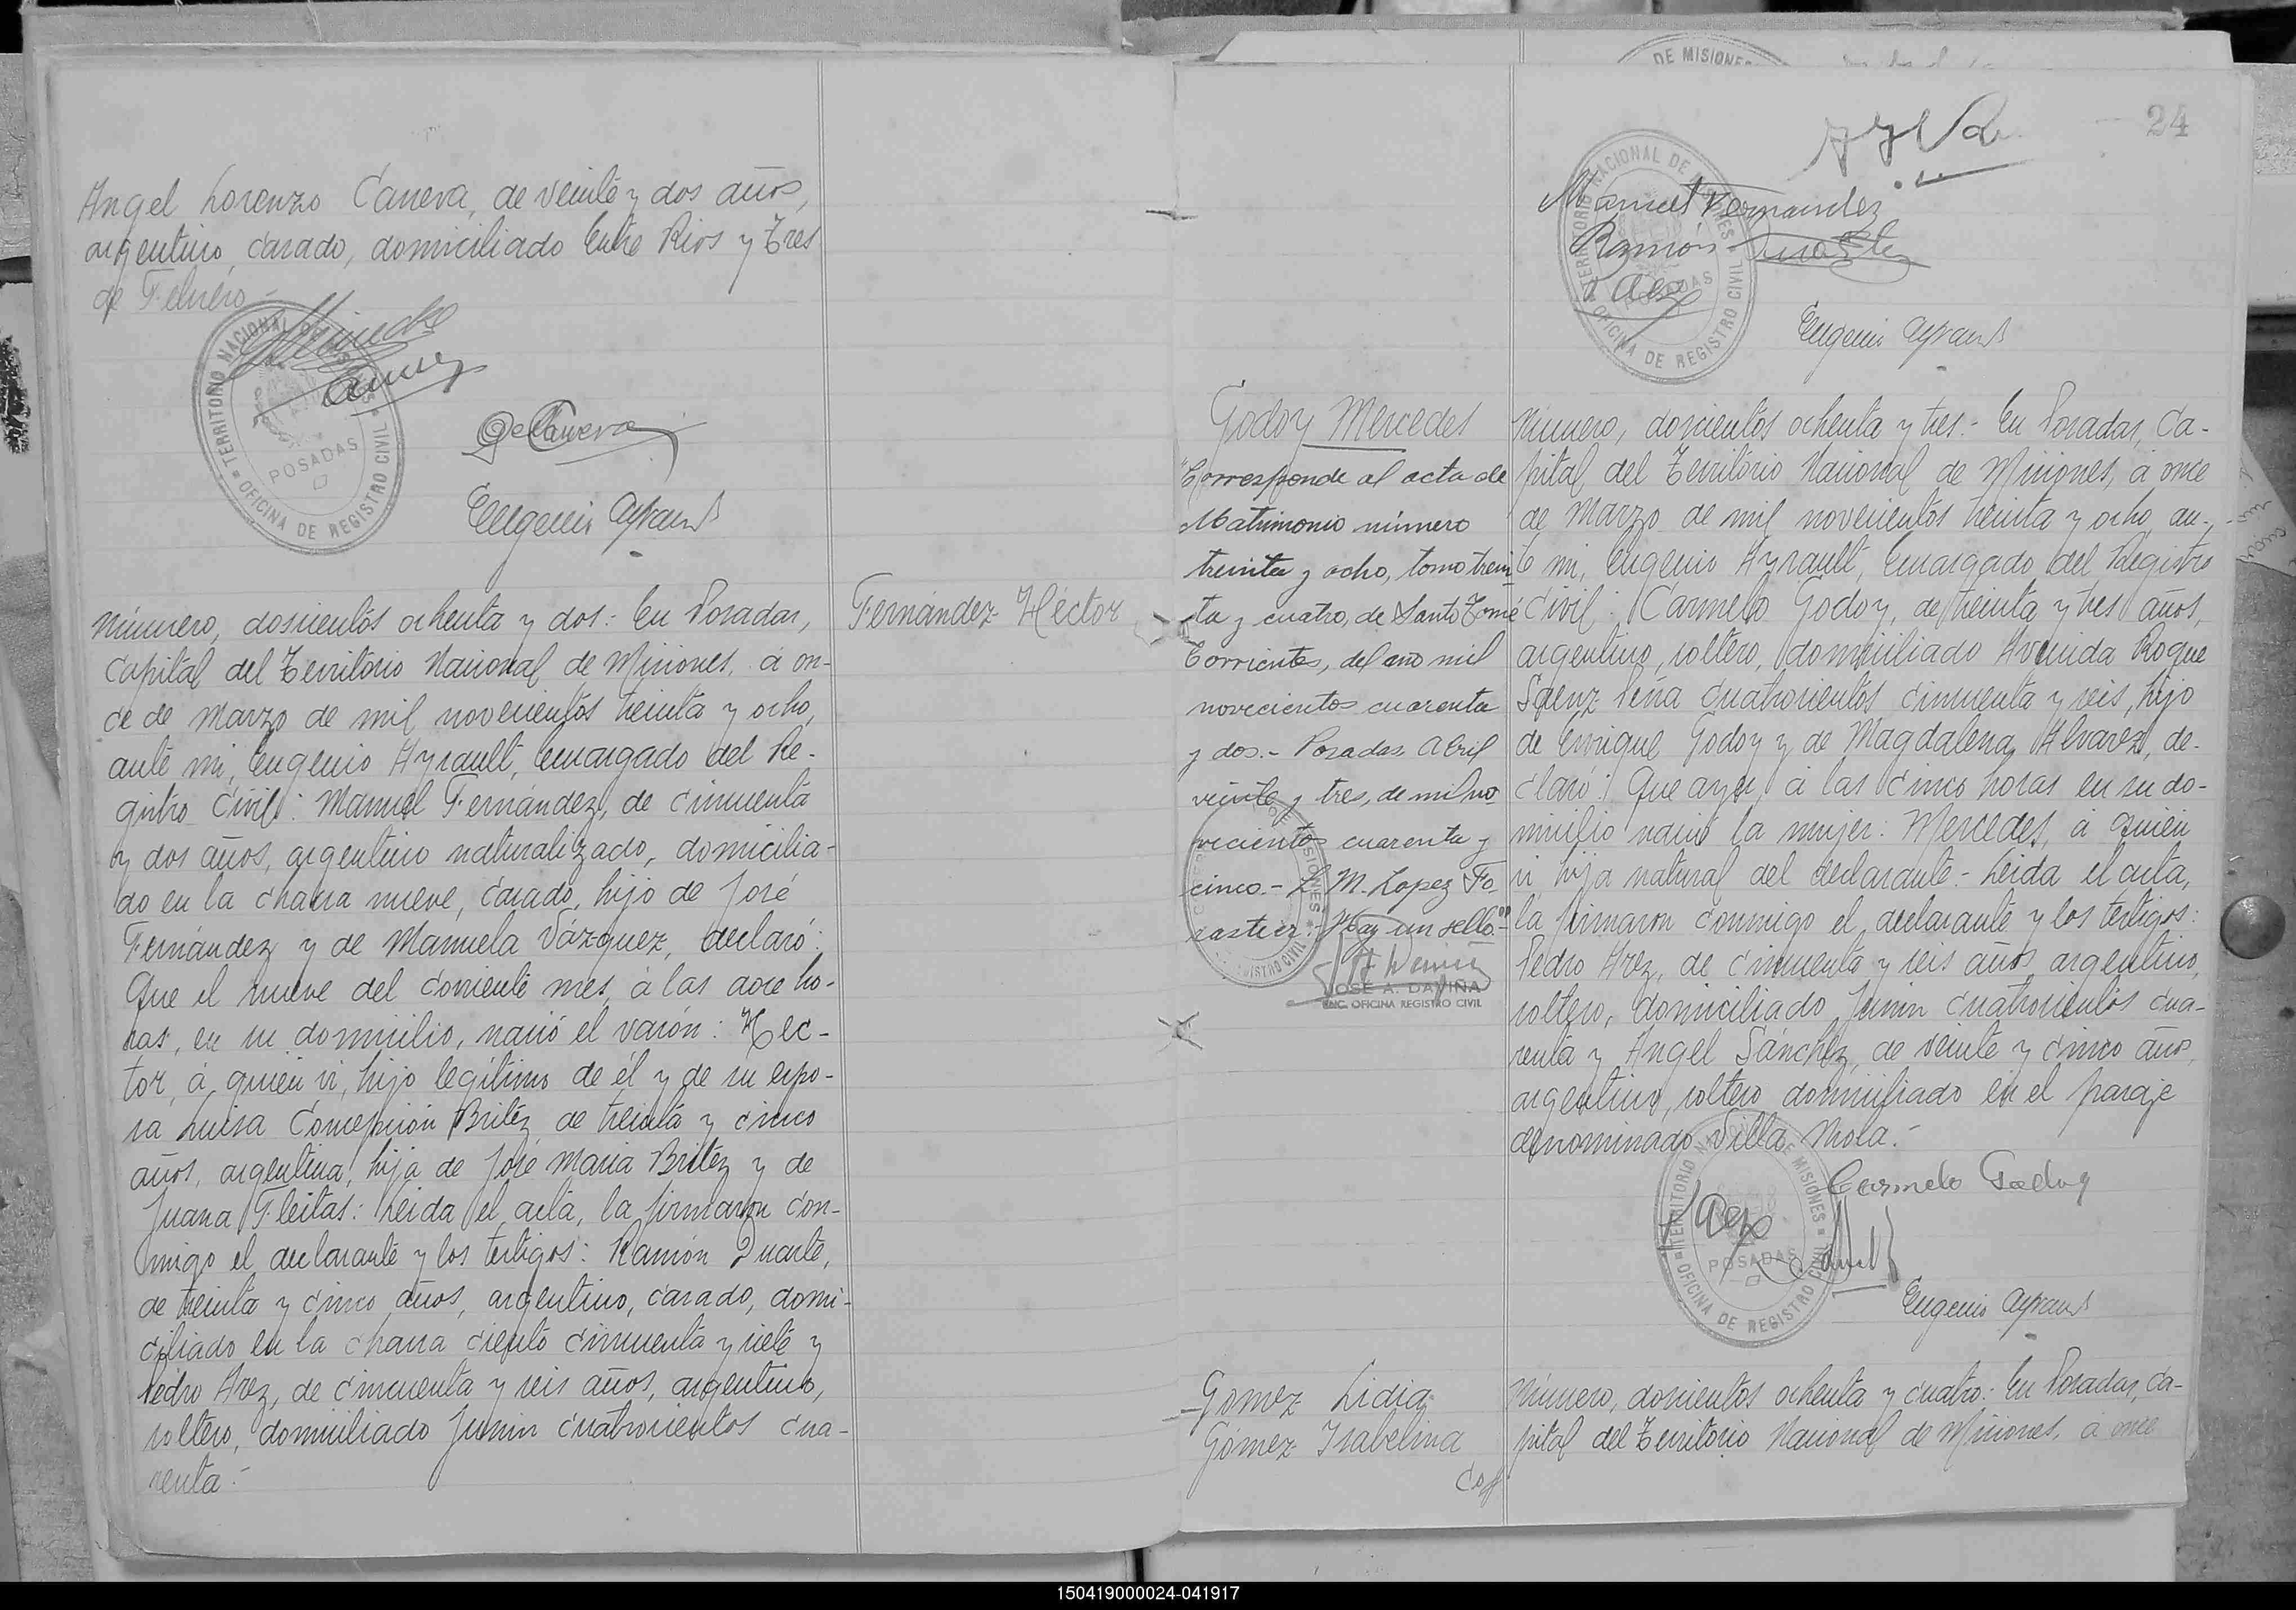 Angel Lorenzo Caneva, de veinte y dos años,
argentino, casado, domiciliado Entre Rios y Tres
de Febrero.-
TERRITORIO NACIONAL DE MISIONES
POSADAS
OFICINA DE REGISTRO CIVIL
Eugenio Ayrault
Fernández Héctor
Número, doscientos ochenta y dos:- En Posadas,
Capital del Territorio Nacional de Misiones, á on-
ce de Marzo de mil novecientos treinta y ocho,
ante mi, Eugenio Ayrault, Encargado del Re-
gistro Civil: Manuel Fernández, de cincuenta
y dos años, argentino naturalizado, domicilia-
do en la chacra nueve, casado, hijo de José
Fernández y de Manuela Vázquez, declaró:
Que el nueve del corriente mes, á las doce ho-
ras, en su domicilio, nació el varón: Héc-
tor, á quien vi, hijo legítimo de él y de su espo-
sa Luisa Concepción Britéz, de treinta y cinco
años, argentina, hija de José Maria Britéz y de
Juana Fleitas: Leida el acta, la firmaron con-
migo el declarante y los testigos: Ramón Duarte,
de treinta y cinco años, argentino, casado, domi-
ciliado en la chacra ciento cincuenta y siete y
Pedro Arez, de cincuenta y seis años, argentino,
soltero, domiciliado Junin cuatrocientos cua-
renta.-
DE MISIONES
24
TERRITORIO NACIONAL DE MISIONES
POSADAS
OFICINA DE REGISTRO CIVIL
Manuel Fernandez
Ramón Duarte
Eugenio Ayrault
Godoy Mercedes
"Corresponde al acta de
Matrimonio número
treinta y ocho, tomo trein
ta y cuatro, de Santo Tomé
Corrientes, del año mil
novecientos cuarenta
y dos.- Posadas, Abril
veinte y tres, de mil no
vecientos cuarenta y
cinco.- L M. Lopez Fo
rastier.- Hay un sello.-"
JOSE A. DAVIÑA
ENC. OFICINA REGISTRO CIVIL
Número, doscientos ochenta y tres:- En Posadas, Ca-
pital del Territorio Nacional de Misiones, á once
de Marzo de mil novecientos treinta y ocho, an-
te mi, Eugenio Ayrault, Encargado del Registro
Civil: Carmelo Godoy, de treinta y tres años,
argentino, soltero, domiciliado Avenida Roque
Sáenz Peña cuatrocientos cincuenta y seis, hijo
de Enrique Godoy y de Magdalena Alvarez, de-
claró: Que ayer, á las cinco horas en su do-
micilio nació la mujer: Mercedes, á quien
vi, hija natural del declarante.- Leida el acta,
la firmaron conmigo el declarante y los testigos:
Pedro Arez, de cincuenta y seis años argentino,
soltero, domiciliado Junin cuatrocientos cua-
renta y Angel Sánchez, de veinte y cinco años,
argentino, soltero domiciliado en el paraje
denominado Villa Mola.-
TERRITORIO NACIONAL DE MISIONES
POSADAS
OFICINA DE REGISTRO CIVIL
Carmelo Godoy
Eugenio Ayrault
Gomez Lidia
Gómez Isabelina
Número, doscientos ochenta y cuatro:- En Posadas, Ca-
pital del Territorio Nacional de Misiones, á once
150419000024-041917